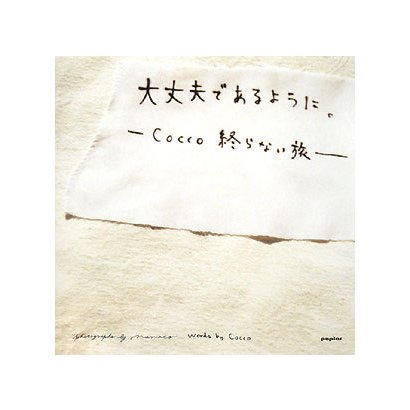 大丈夫であるように。
ーCocco 終らない旅ー
photographs by nanaco words by Cocco
poplar